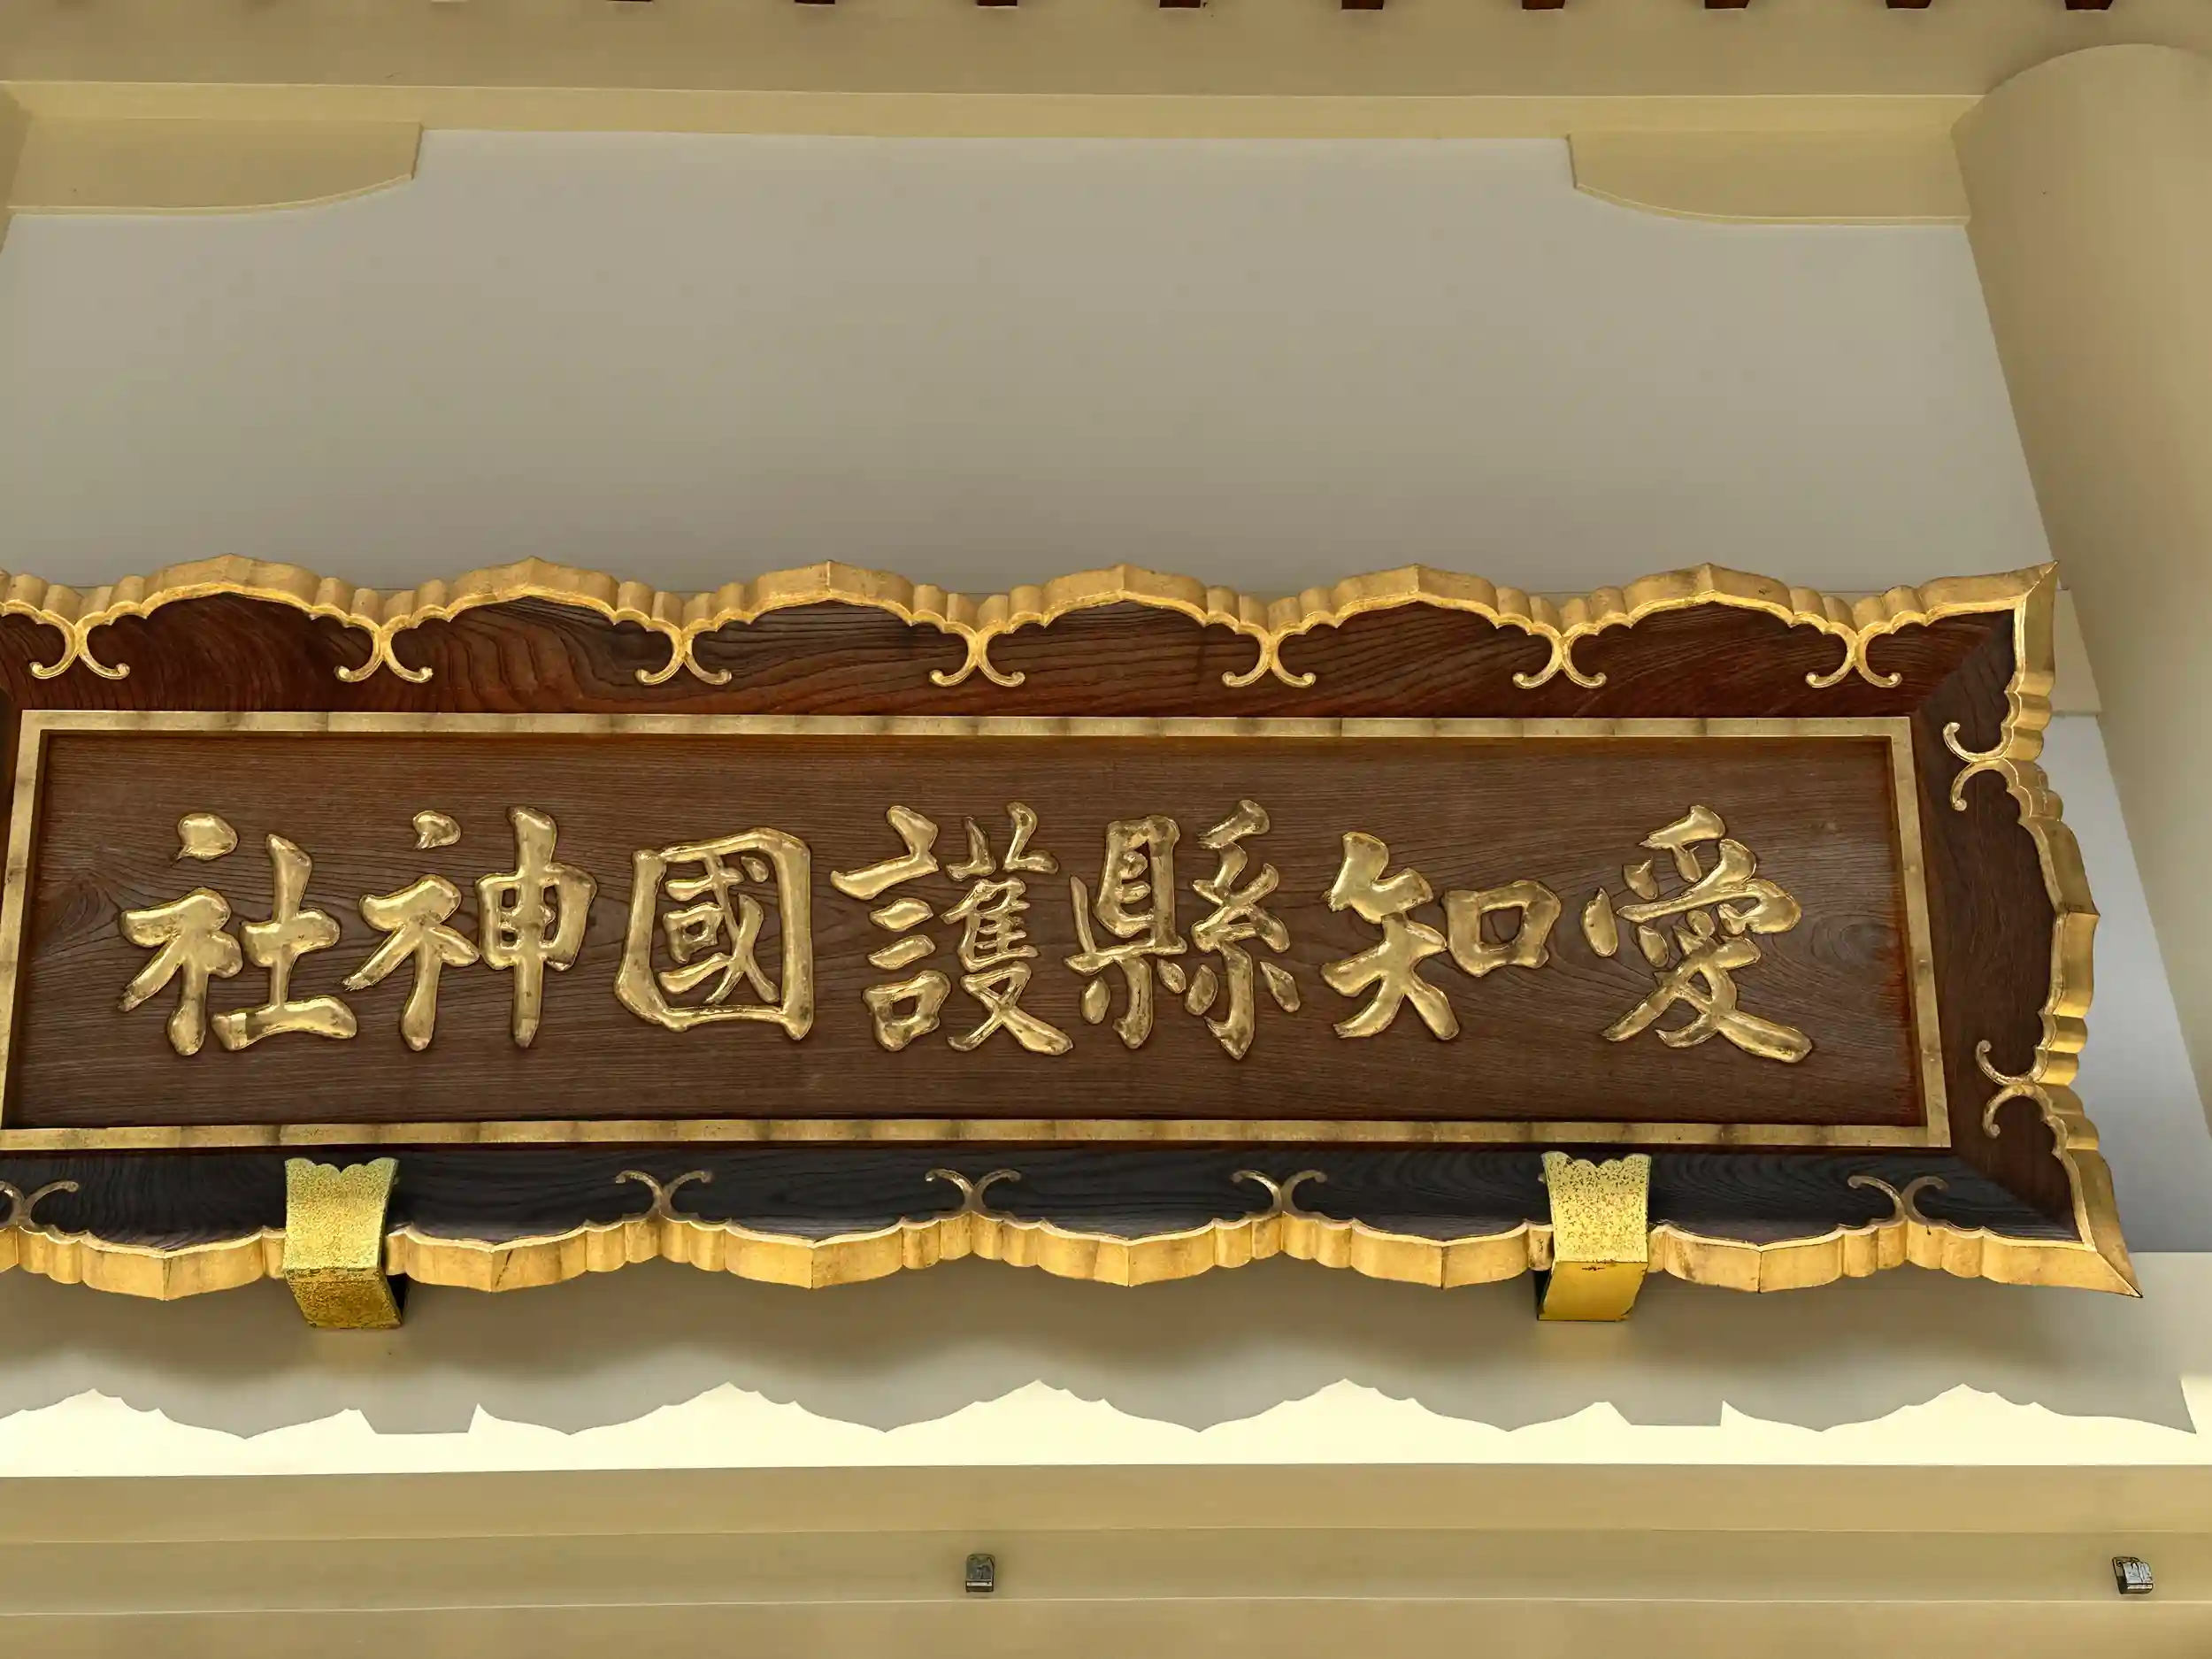 愛知縣護國神社